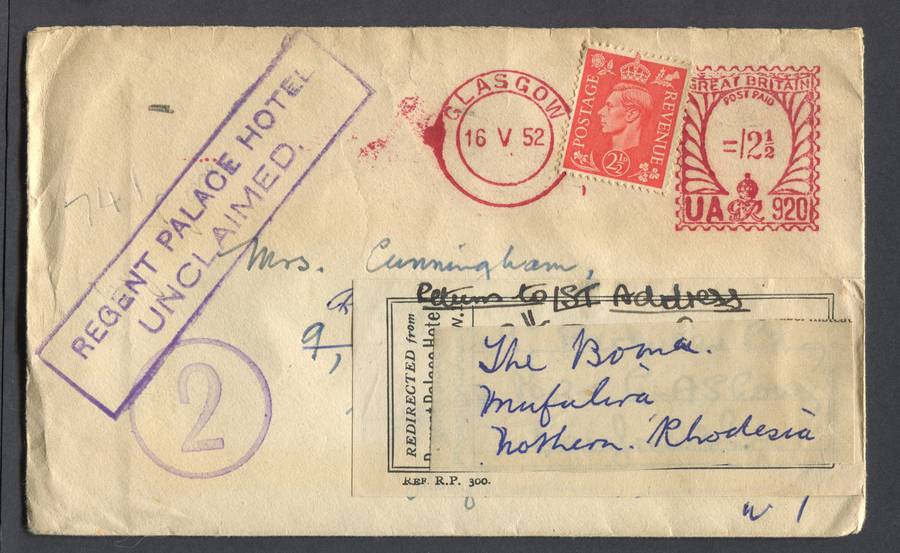 REGENT PALACE HOTEL
UNCLAIMED.
2
GLASGOW
16 V 52
POSTAGE
REVENUE
2½D
GREAT BRITAIN
POST PAID
=/2½
UA GR 920
Mrs. Cunningham,
9,
Return to 1ST Address
REDIRECTED from
Palace Hotel
The Boma.
Mufulira
Nothern. Rhodesia
REF. R.P. 300.
W 1